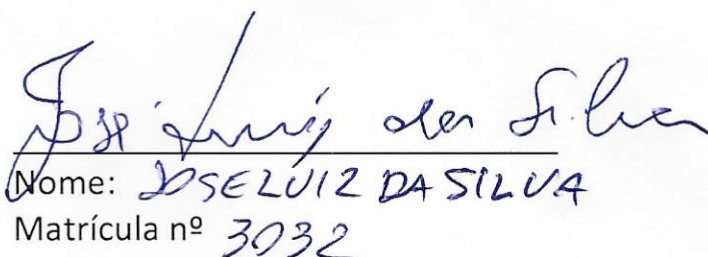 José Luiz da Silva
Nome: JOSE LUIZ DA SILVA
Matrícula nº 3032